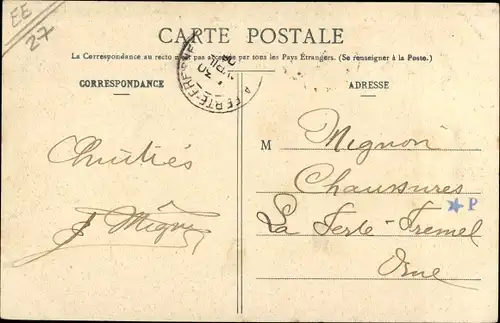 EE
27
CARTE POSTALE
La Correspondance au recto n'est pas acceptée par tous les Pays Étrangers. (Se renseigner à la Poste.)
CORRESPONDANCE
ADRESSE
LA FERTÉ-FRESNEL
M Mignon
Chaussures
La Ferté-Fresnel
Orne
Amitiés
Mignon
P